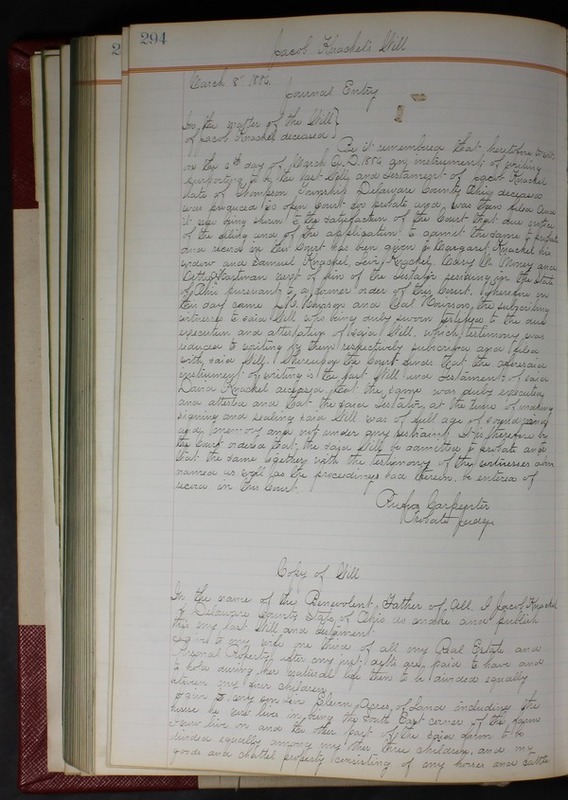 2
294
Jacob Knackel's Will
March 8th 1886.
Journal Entry
In the matter of the Will
of Jacob Knackel deceased
Be it remembered that heretofore to wit
on the day of March A.D. 1886 an instrument of writing
purporting to be the last Will and Testament of Jacob Knackel
late of Thompson Township Delaware County Ohio deceased
was produced in open Court for probate and was then filed And
it now being shown to the satisfaction of the Court that due notice
of the filing and of the application to admit the same to probate
and record in this Court has been given to Margaret Knackel his
widow and Samuel Knackel, Levi Knackel, Mary and
Hartman next of kin of the testator residing in the State
of Ohio pursuant to a former order of this Court. Therefore on
this day came and the subscribing
witnesses to said Will who being duly sworn testified to the due
execution and attestation of said Will, which testimony was
reduced to writing by them respectively subscribed and filed
with said Will. Thereupon the Court finds that the aforesaid
instrument of writing is the last Will and Testament of said
Knackel deceased, that the same was duly executed
and attested and that the said testator, at the time of making
signing and sealing said Will was of full age of sound mind
and memory and not under any restraint. It is therefore by
the Court ordered that the said Will be admitted to probate and
that the same together with the testimony of the witnesses
named as well as the proceedings had therein be entered of
record in this Court
Rufus Carpenter
Probate Judge
Copy of Will
In the name of the Benevolent Father of All. I Jacob Knackel
of Delaware County State of Ohio do make and publish
this my last Will and testament.
my wife one third of all my Real Estate and
Personal Property after my just debts are paid to have and
to hold during her natural life then to be divided equally
between my four children
my son Levi Eleven Acres of Land including the
house he now lives in being the South East corner of the farm
live on and the other part of the said farm to be
divided equally among my other three children, and my
goods and chattel property consisting of my horses and cattle